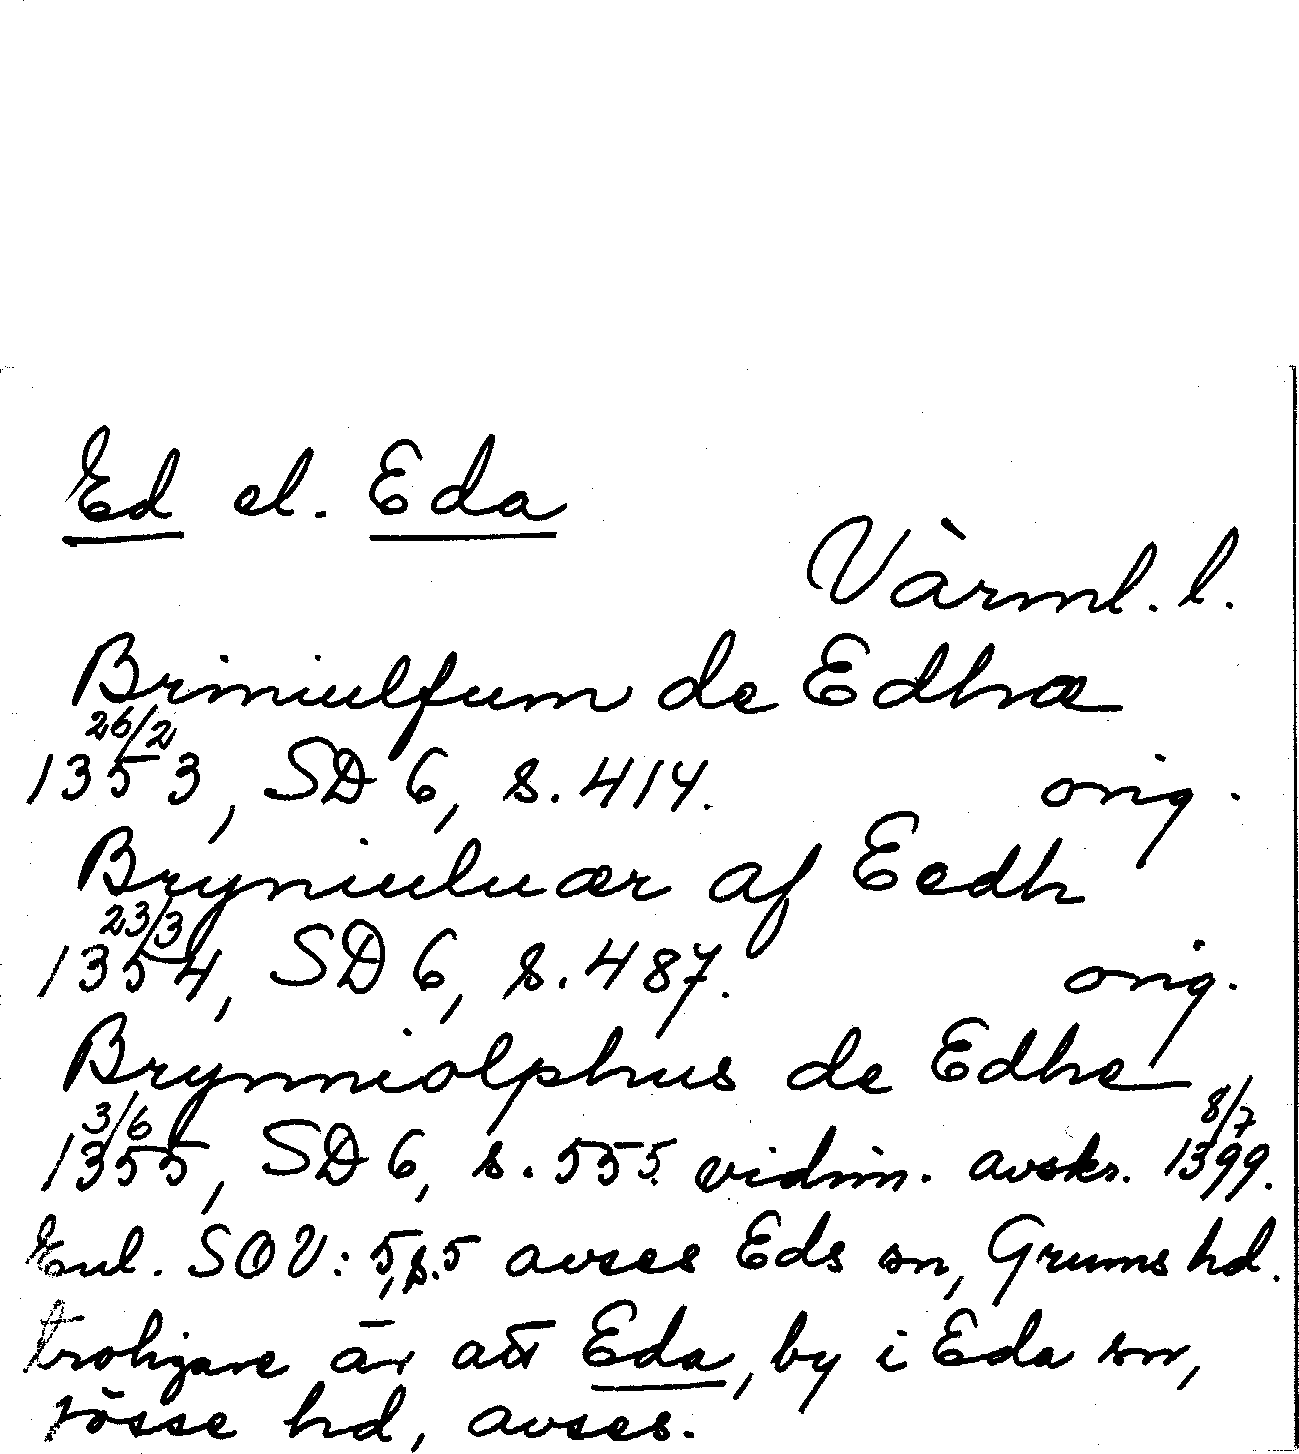 Ed el. Eda
Värml. l.
Briniulfum de Edhæ
26/2 1353, SD 6, s. 414. orig.
Bryniuluær af Eedh
23/3 1354, SD 6, s. 487. orig.
Brynniolphus de Edhe
3/6 1355, SD 6, s. 555. vidim. avskr. 8/7 1399.
Enl. SOV: 5, s. 5 avses Eds sn, Grums hd.
troligare är att Eda, by i Eda sn,
Jösse hd, avses.